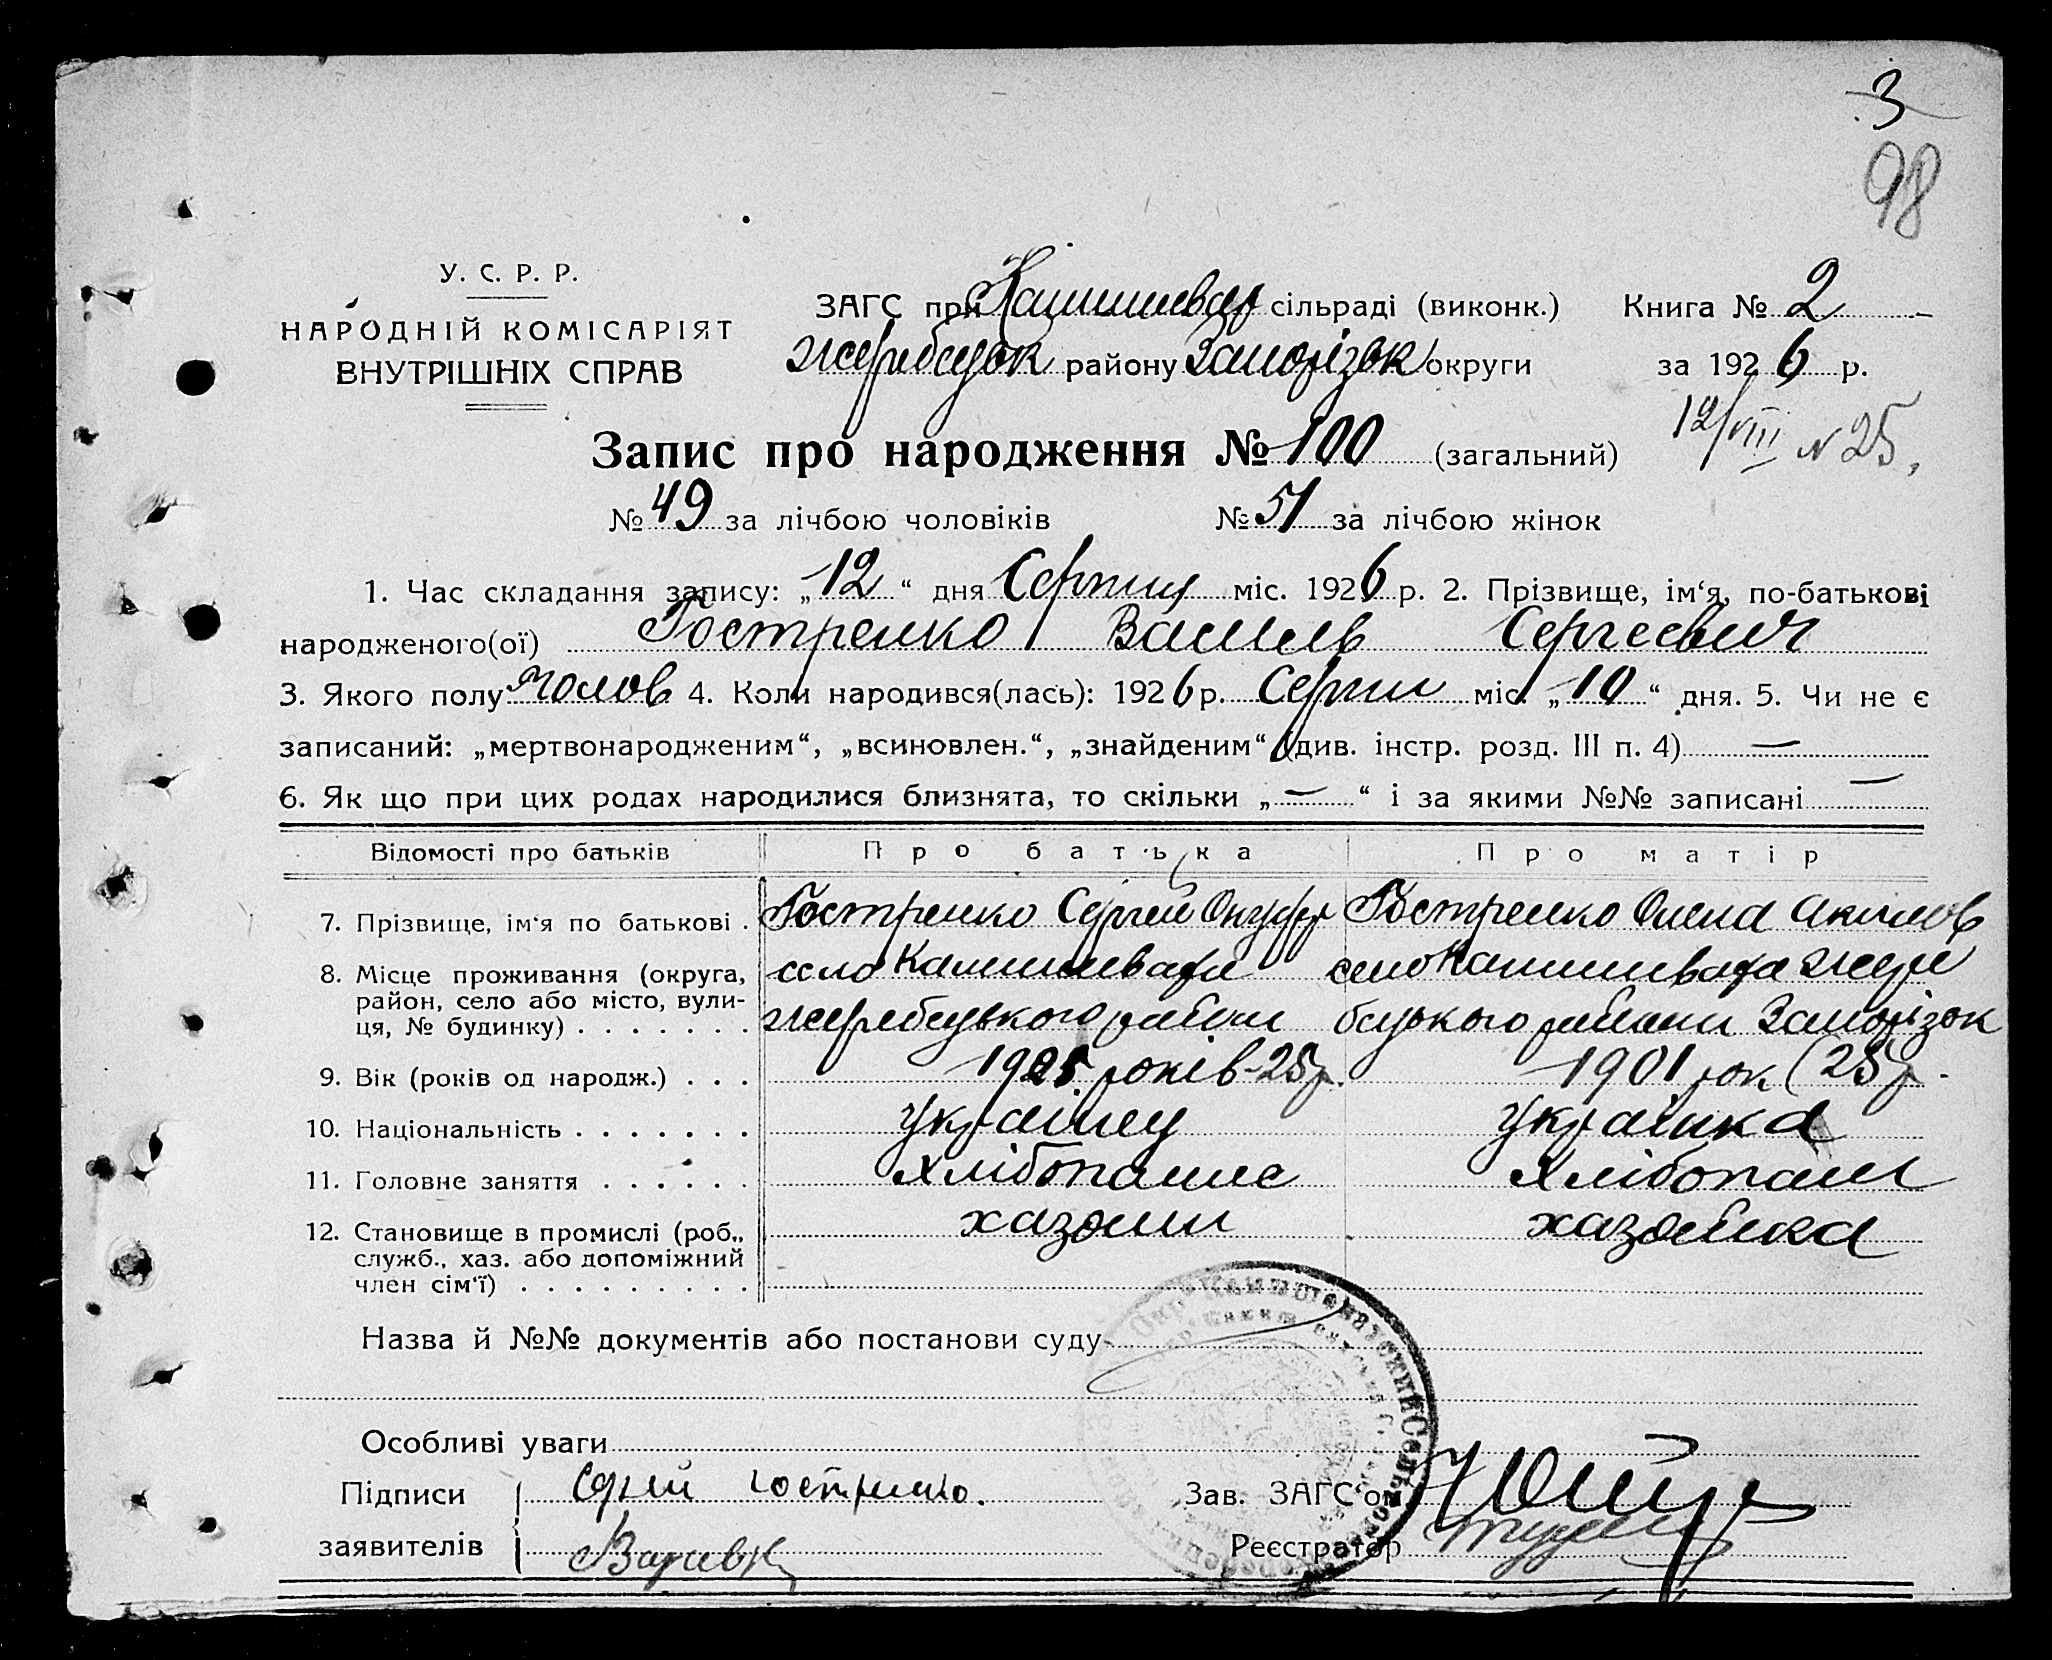 3
98
У. С. Р. Р.
НАРОДНІЙ КОМІСАРІЯТ
ВНУТРІШНІХ СПРАВ
ЗАГС при Камишеват сільраді (виконк.) Книга № 2
Жеребецьк району Запорізьк округи за 1926 р.
12/VIII N 25,
Запис про народження № 100 (загальний)
№ 49 за лічбою чоловіків № 51 за лічбою жінок
1. Час складання запису: „12“ дня Серпня міс. 1926 р. 2. Прізвище, ім‘я, по-батькові
народженого(ої) Гостренко Василь Сергеевич
3. Якого полу чолов 4. Коли народився(лась): 1926 р. Серпн міс. „10“ дня. 5. Чи не є
записаний: „мертвонародженим“, „всиновлен.“, „знайденим“ (див. інстр. розд. III п. 4) —
6. Як що при цих родах народилися близнята, то скільки „—“ і за якими №№ записані —
Відомості про батьків Про батька Про матір
7. Прізвище, ім‘я по батькові . Гостренко Сергей Онуфр Гостренко Олена Акимов
8. Місце проживання (округа, село Камишевата село Камишевата Жере
район, село або місто, вули-
ця, № будинку) . . . . . . . Жеребецького району бецького району Запорізьк
9. Вік (років од народж.) . . . років-25р. 1901 рок (25р.
10. Національність . . . . . . . Українец Українка
11. Головне заняття . . . . . . Хлібопашес Хлібопаш
12. Становище в промислі (роб., хазяин хазяйка
служб., хаз. або допоміжний
член сім‘ї) . . . . . . . . .
Назва й №№ документів або постанови суду
Особливі уваги
Підписи Сергій гостренко. Зав. ЗАГС‘ом
заявителів Реєстратор